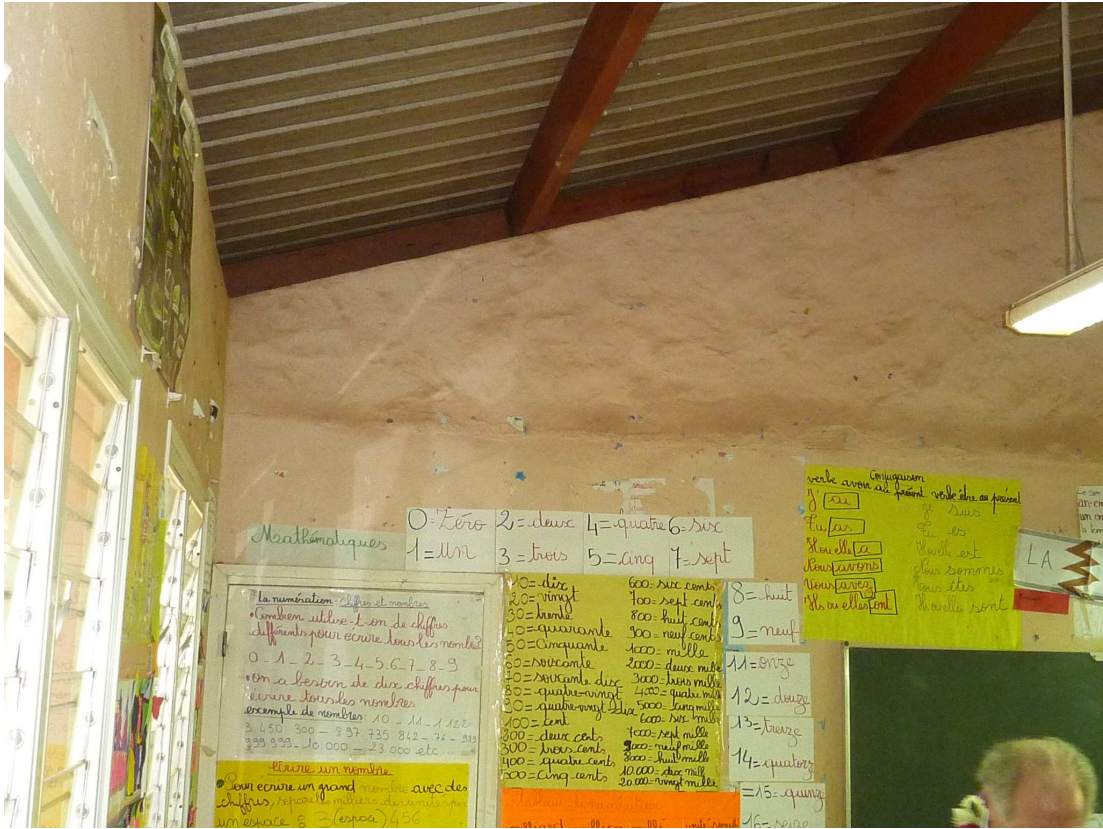 Mathématiques
0=Zéro
1=Un
2=deux
3=trois
4=quatre
5=cinq
6=six
7=sept
8=huit
9=neuf
11=onze
12=douze
13=treize
14=quatorz
=15=quinz
16=seize
La numération: chiffres et nombres
•Combien utilise-t-on de chiffres
différents pour écrire tous les nombres?
0-1-2-3-4-5-6-7-8-9
•On a besoin de dix chiffres pour
écrire tous les nombres
exemple de nombres: 10-11-1 122
3 450 300 - 897 735 842 - 76 - 989
999 999 - 10.000 - 23 000 etc
Ecrire un nombre
•Pour écrire un grand nombre avec des
chiffres, sépare les milliers des unités par
un espace : 3 (espace) 456
10=dix
20=vingt
30=trente
40=quarante
50=Cinquante
60=soixante
70=soixante dix
80=quatre-vingt
90=quatre-vingt-dix
100=cent
200=deux cents
300=trois cents
400=quatre cents
500=cinq-cents
600=six cents
700=sept cents
800=huit cents
900=neuf cents
1000=mille
2000=deux mille
3000=trois mille
4000=quatre mille
5000=cinq mille
6000=six mille
7000=sept mille
9000=neuf mille
8000=huit mille
10.000=dix mill
20.000=vingt mille
Tableau de numération
Conjugaison
verbe avoir au présent verbe être au présent
J' ai
Tu as
Il ou elle a
Nous avons
Vous avez
Ils ou elles ont
Je suis
Tu es
Il ou elle est
Nous sommes
Vous êtes
Ils ou elles sont
LA